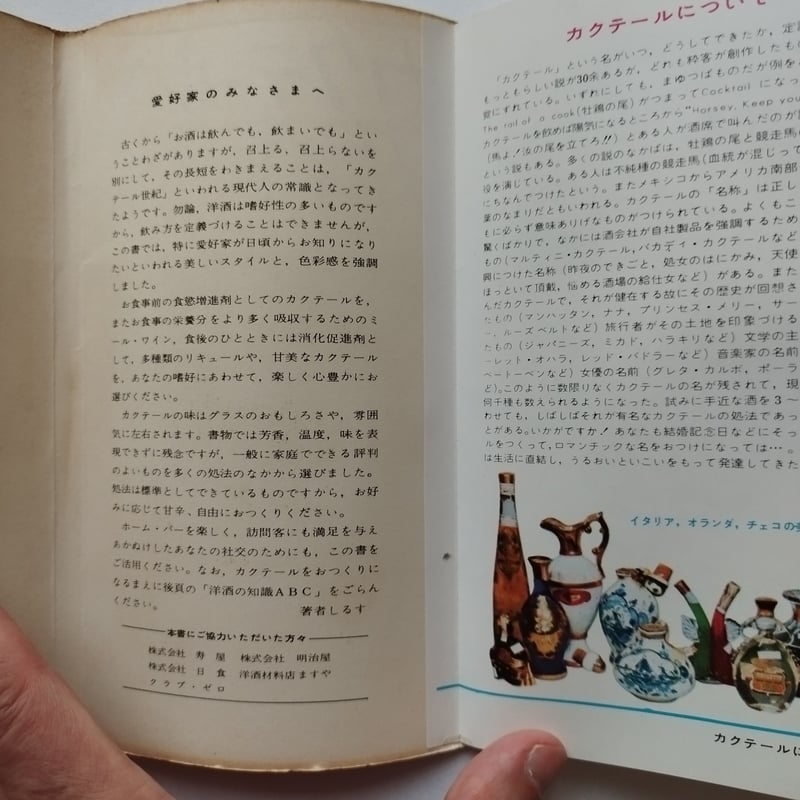 愛好家のみなさまへ
古くから「お酒は飲んでも、飲まいでも」とい
うことわざがありますが、召上る、召上らないを
別にして、その長短をわきまえることは、「カク
テール世紀」といわれる現代人の常識となってき
たようです。勿論、洋酒は嗜好性の多いものです
から、飲み方を定義づけることはできませんが、
この書では、特に愛好家が日頃からお知りになり
たいといわれる美しいスタイルと、色彩感を強調
しました。
お食事前の食慾増進剤としてのカクテールを、
またお食事の栄養分をより多く吸収するためのミ
ール・ワイン、食後のひとときには消化促進剤と
して、多種類のリキュールや、甘美なカクテール
を、あなたの嗜好にあわせて、楽しく心豊かにお
選びください。
カクテールの味はグラスのおもしろさや、雰囲
気に左右されます。書物では芳香，温度，味を表
現できずに残念ですが、一般に家庭でできる評判
のよいものを多くの処法のなかから選びました。
処法は標準としてできているものですから、お好
みに応じて甘辛、自由におつくりください。
ホーム・バーを楽しく、訪問客にも満足を与え
あかぬけしたあなたの社交のためにも、この書を
ご活用ください。なお、カクテールをおつくりに
なるまえに後頁の「洋酒の知識ＡＢＣ」をごらん
ください。 著者しるす
本書にご協力いただいた方々
株式会社 寿屋 株式会社 明治屋
株式会社 日食 洋酒材料店ますや
クラブ・ゼロ
カクテールについて
「カクテール」という名がいつ，どうしてできたか，定
もっともらしい説が30余あるが，どれも粋客が創作したもの
覚にずれている。いずれにしても，まゆつばものだが例を
The rail of a cook(牡鶏の尾)がつまってCocktailになっ
カクテールを飲めば陽気になるところから"Horsey, Keep your
(馬よ！汝の尾を立てろ!!)とある人が酒席で叫んだのが
という説もある。多くの説のなかば，牡鶏の尾と競走馬
役を演じている。ある人は不純種の競走馬(血統が混じって
にちなんでつけたという。またメキシコからアメリカ南部
葉のなまりだともいわれる。カクテールの「名称」は正し
もに必らず意味ありげなものがつけられている。よくもこ
驚くばかりで，なかには酒会社が自社製品を強調するため
もの(マルティニ・カクテール，バカディ・カクテールなど
興につけた名称(昨夜のできごと，処女のはにかみ，天使
ほっといて頂戴，悩める酒場の給仕女など)がある。また
んだカクテールで，それが健在する故にその歴史が回想さ
たもの(マンハッタン，ナナ，プリンセス・メリー，サー
ー，ルーズベルトなど)旅行者がその土地を印象づける
たもの(ジャパニーズ，ミカド，ハラキリなど)文学の主
ーレット・オハラ，レッド・バドラーなど)音楽家の名前
ベートーベンなど)女優の名前(グレタ・カルボ，ポーラ
ど)。このように数限りなくカクテールの名が残されて，現
何千種も数えられるようになった。試みに手近な酒を3～
わせても，しばしばそれが有名なカクテールの処法であっ
とがある。いかがですか！あなたも結婚記念日などにそっ
ルをつくって，ロマンチックな名をおつけになっては…。
は生活に直結し，うるおいといこいをもって発達してきた
イタリア，オランダ，チェコの
カクテールに